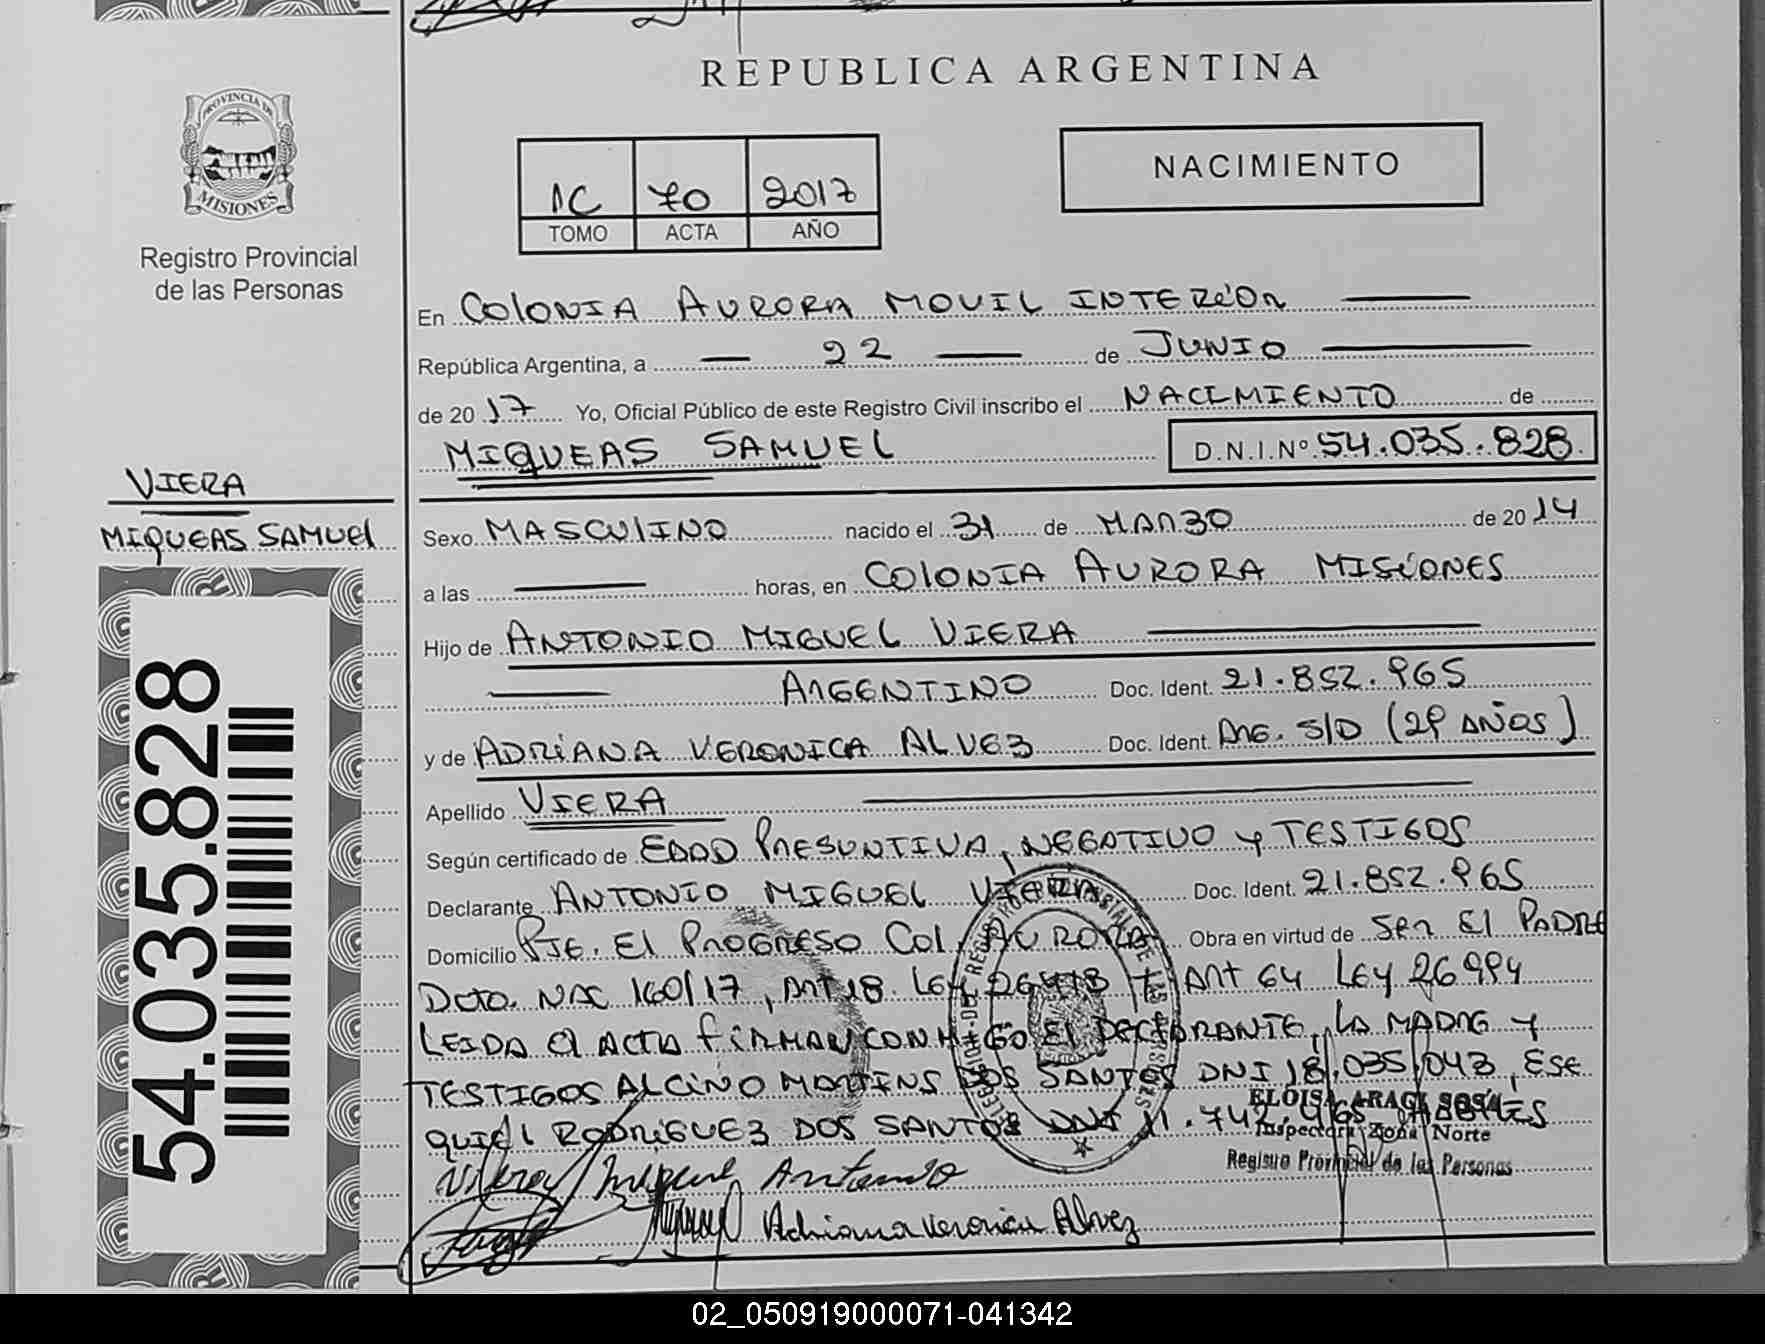 REPUBLICA ARGENTINA
PROVINCIA DE
MISIONES
Registro Provincial
de las Personas
1C 70 2017
TOMO ACTA AÑO
NACIMIENTO
En COLONIA AURORA MOVIL INTERIOR
República Argentina, a 22 de JUNIO
de 20 17 Yo, Oficial Público de este Registro Civil inscribo el NACIMIENTO de
MIQUEAS SAMUEL D.N.I.Nº 54.035.828
VIERA
MIQUEAS SAMUEL
Sexo MASCULINO nacido el 31 de MARZO de 20 14
a las horas, en COLONIA AURORA MISIONES
Hijo de ANTONIO MIGUEL VIERA
ARGENTINO Doc. Ident. 21.852.965
y de ADRIANA VERONICA ALVEZ Doc. Ident. ARG. S/D (29 AÑOS)
Apellido VIERA
Según certificado de EDAD PRESUNTIVA, NEGATIVO Y TESTIGOS
Declarante ANTONIO MIGUEL VIERA Doc. Ident. 21.852.965
Domicilio PJE. EL PROGRESO COL. AURORA Obra en virtud de SER EL PADRE
Dcto. NAC 160/17, ART 18 LEY 26413 Y ART 64 LEY 26994
LEIDA EL ACTA FIRMAN CONMIGO EL DECLARANTE, LA MADRE Y
TESTIGOS ALCINO MARTINS DOS SANTOS DNI 18.035.043, ESE
QUIEL RODRIGUEZ DOS SANTOS DNI 11.742.
ELOISA ARACI SOSA
Inspectora Zona Norte
Registro Provincial de las Personas
Viera Miguel Antonio
Adriana Veronica Alvez
54.035.828
02_050919000071-041342